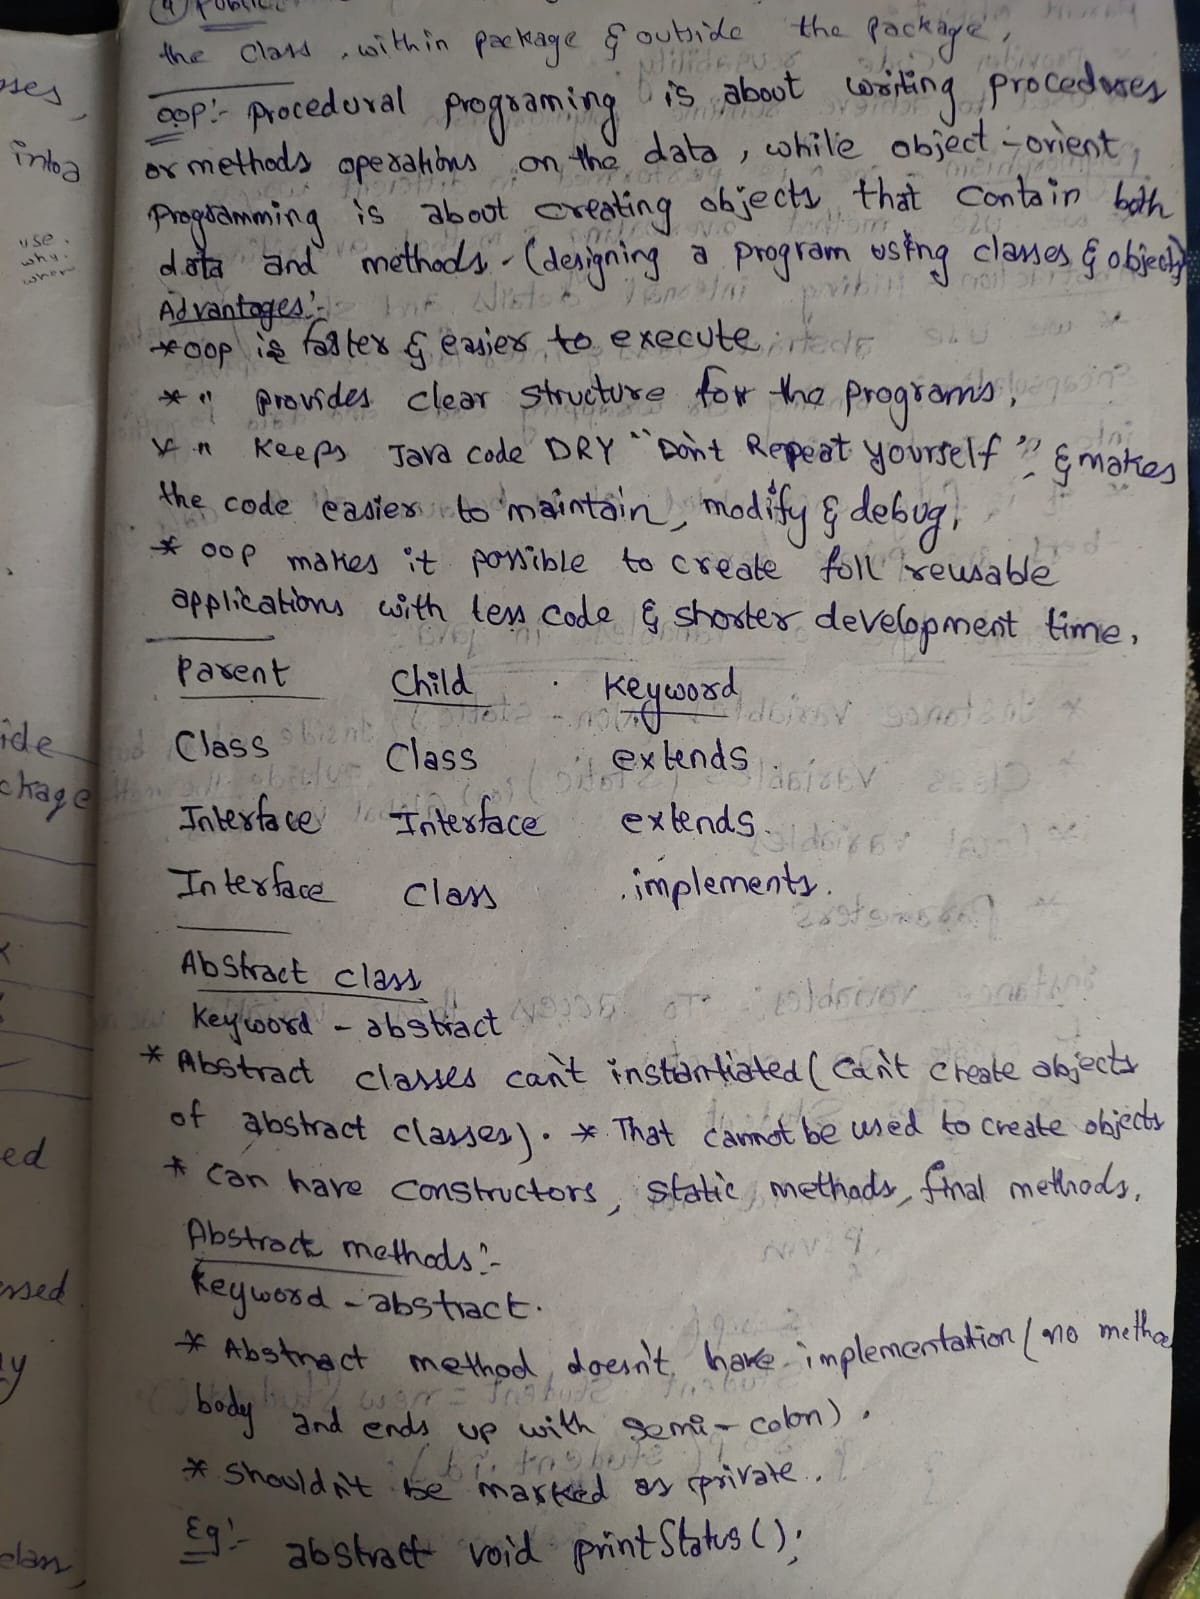 (4) Public:
the class, within package & outside the package,
OOP:- Procedural programing is about writing procedures
or methods operations on the data, while object-orient
Programming is about creating objects that contain both
data and methods - (designing a program using classes & objects)
Advantages:-
* OOP is faster & easier to execute
* " provides clear structure for the programs,
* " Keeps Java code DRY "Don't Repeat yourself" & makes
the code easier to maintain, modify & debug,
* OOP makes it possible to create full reusable
applications with less code & shorter development time,
Parent Child Keyword
Class Class extends
Interface Interface extends
Interface Class implements.
Abstract class
Keyword - abstract
* Abstract classes can't instantiated (can't create objects
of abstract classes). * That cannot be used to create objects
* Can have constructors, static methods, final methods,
Abstract methods:-
Keyword - abstract.
* Abstract method doesn't have implementation (no metho
body and ends up with semi-colon).
* shouldn't be marked as private.
Eg:- abstract void printStatus();
oses,
intoa
use.
why.
ide
ckage
ed
essed
class,